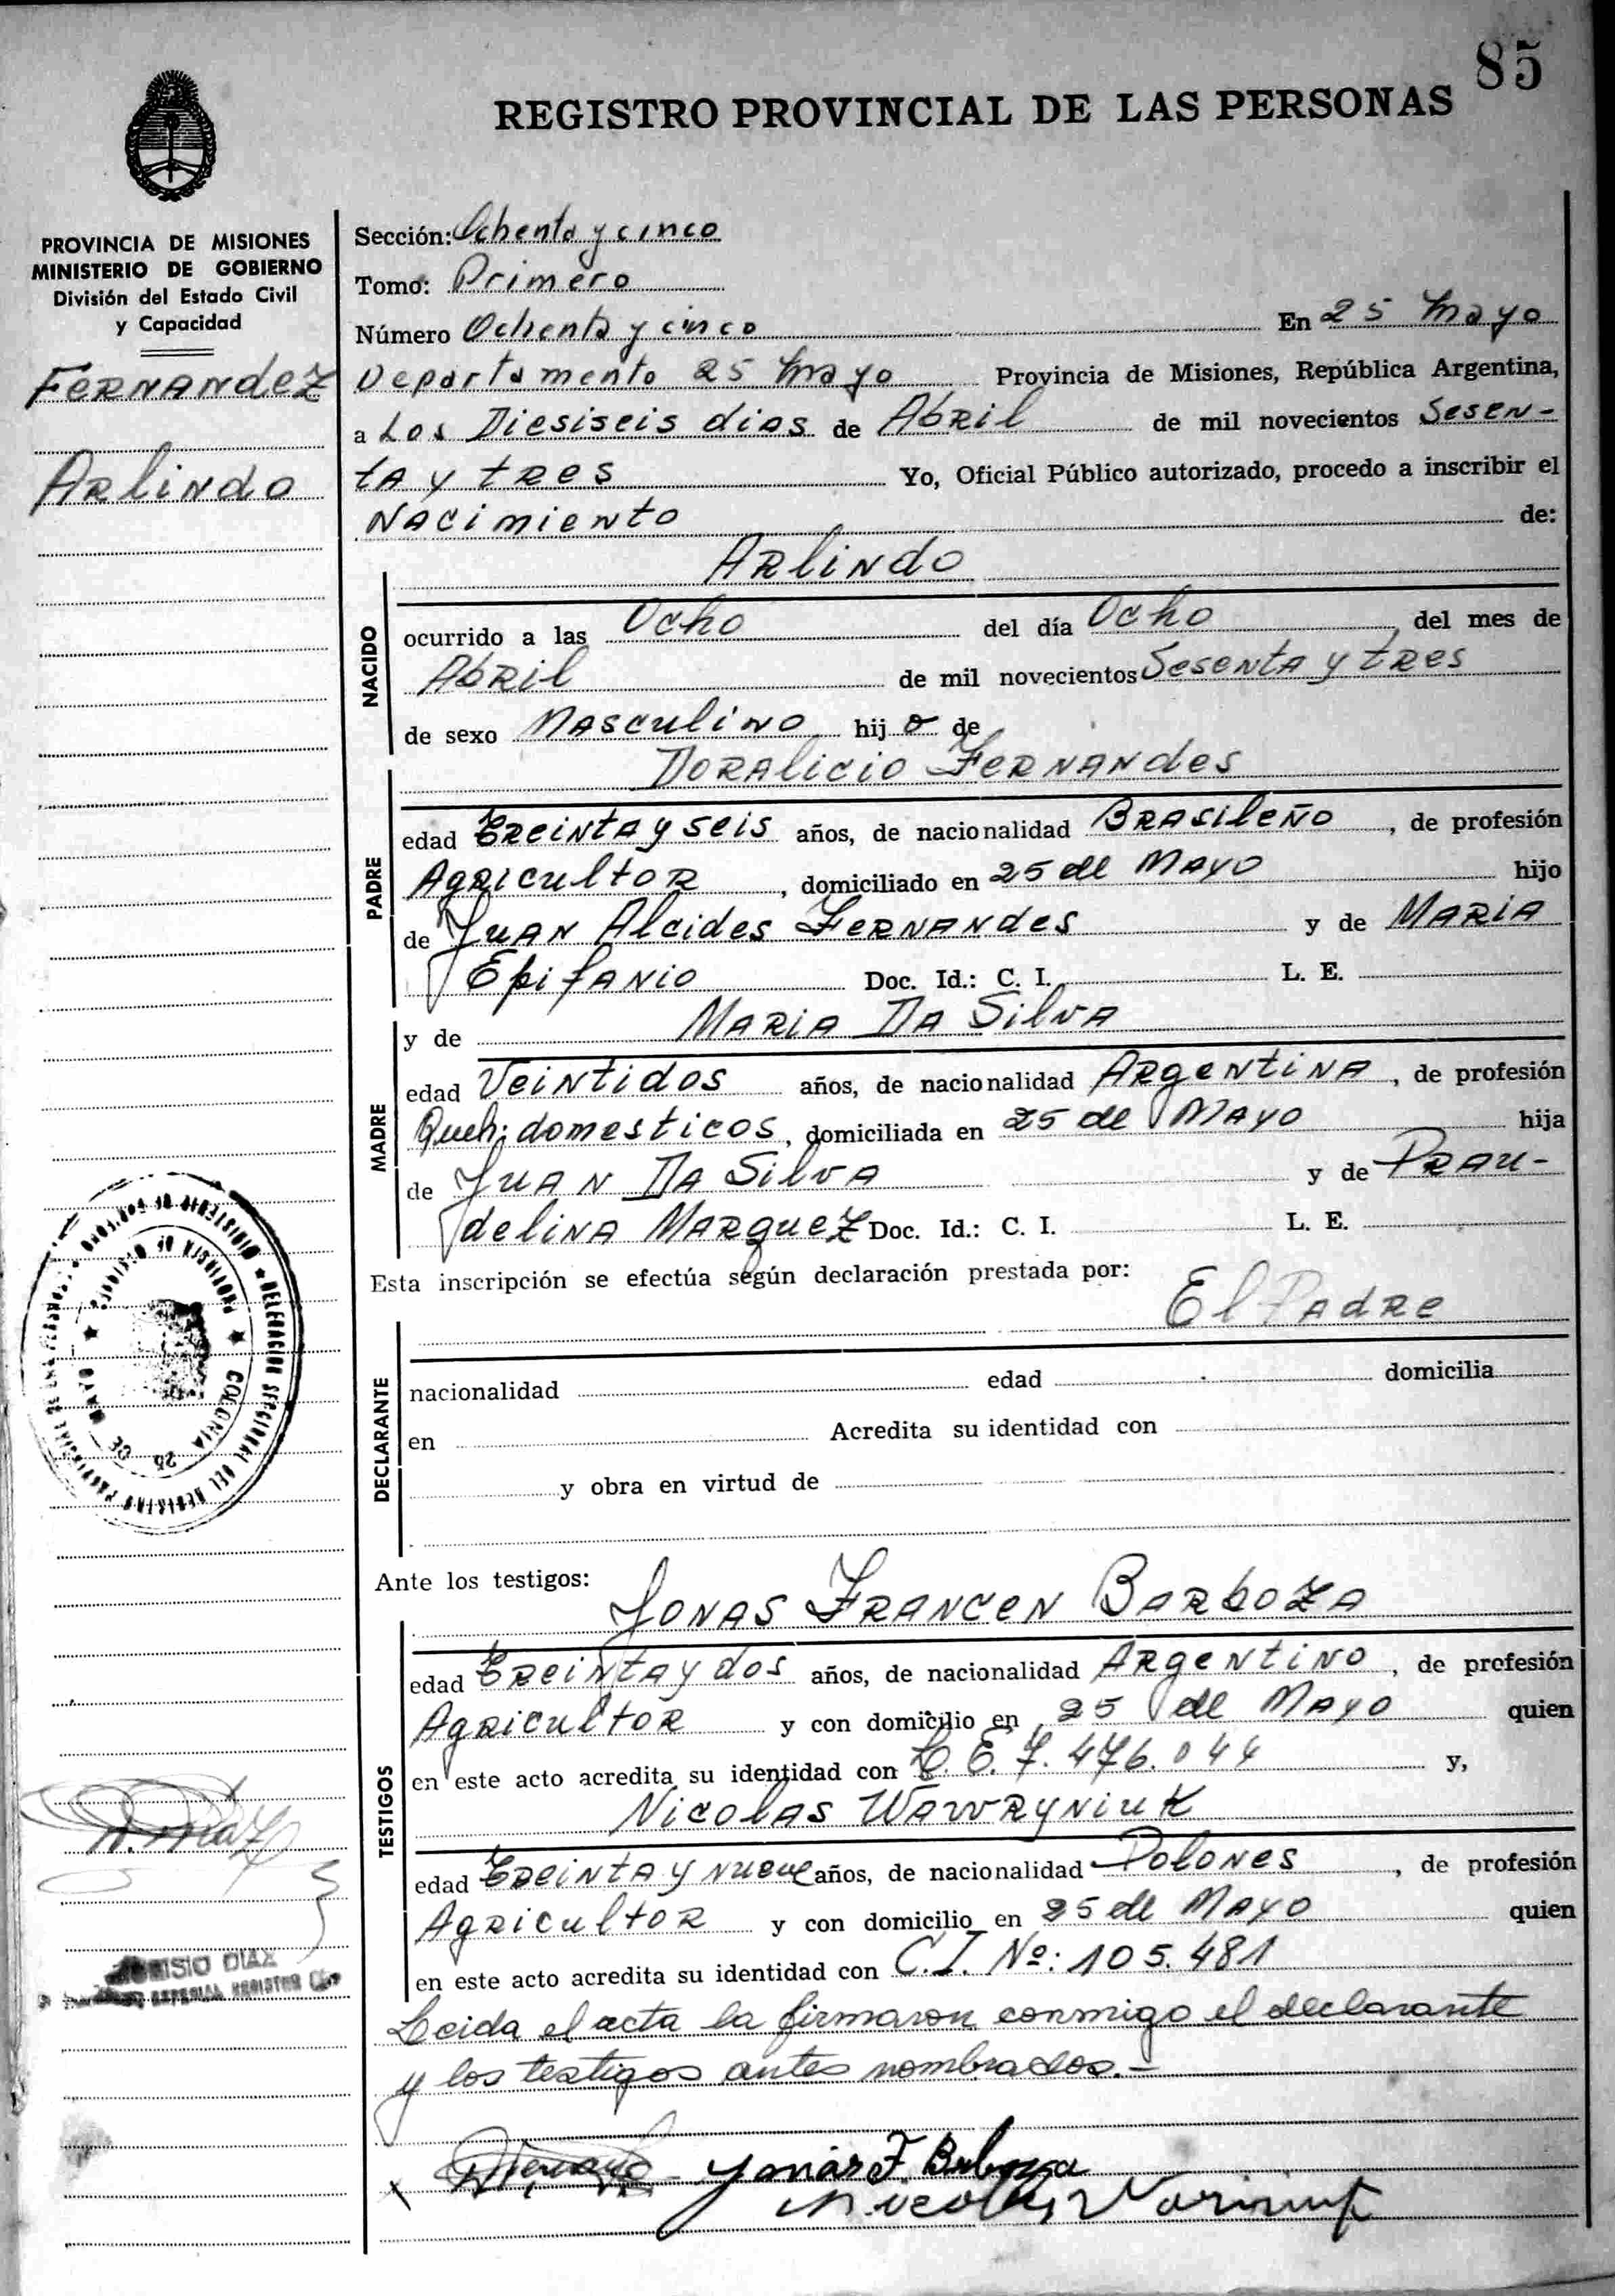 85
REGISTRO PROVINCIAL DE LAS PERSONAS
PROVINCIA DE MISIONES
MINISTERIO DE GOBIERNO
División del Estado Civil
y Capacidad
FERNANdeZ
ARliNdo
Sección: Ochenta y cinco
Tomo: Primero
Número Ochenta y cinco En 25 Mayo
Departamento 25 Mayo Provincia de Misiones, República Argentina,
a Los Diesiseis dias de AbRil de mil novecientos SeseN-
tA y tRes Yo, Oficial Público autorizado, procedo a inscribir el
NAcimieNto de:
ARliNdo
NACIDO
ocurrido a las Ocho del día Ocho del mes de
AbRil de mil novecientos SeseNtA y tRes
de sexo MAsculiNo hijo de
DORAlicio FeRNANdes
PADRE
edad tReiNtA y seis años, de nacionalidad BRAsileÑo, de profesión
AgRicultoR, domiciliado en 25 de MAyo hijo
de JuAN Alcides FeRNANdes y de MARiA
EpifANio Doc. Id.: C. I. L. E.
y de MARiA DA SilvA
MADRE
edad VeiNtidos años, de nacionalidad ARgeNtiNA, de profesión
Queh. domesticos, domiciliada en 25 de MAyo hija
de JuAN DA SilvA y de PRAu-
deliNA MARqueZ Doc. Id.: C. I. L. E.
Esta inscripción se efectúa según declaración prestada por:
El PAdRe
DECLARANTE
nacionalidad edad domicilia
en Acredita su identidad con
y obra en virtud de
Ante los testigos:
JoNAS FRANceN BARboZA
TESTIGOS
edad tReiNtA y dos años, de nacionalidad ARgeNtiNo, de profesión
AgRicultoR y con domicilio en 25 de MAyo quien
en este acto acredita su identidad con 7.476.044 y,
NicolAs WAwRyNiuk
edad tReiNtA y Nueve años, de nacionalidad PoloNes, de profesión
AgRicultoR y con domicilio en 25 de MAyo quien
en este acto acredita su identidad con C.I. Nº: 105.481
Leida el acta la firmaron conmigo el declarante
y los testigos antes nombrados.-
DELEGACION SECCIONAL DEL REGISTRO PROVINCIAL DE LAS PERSONAS
MINISTERIO DE GOBIERNO
PROVINCIA DE MISIONES
COLONIA 25 DE MAYO
DIAZ
Jonas F. Barboza
Nicolas